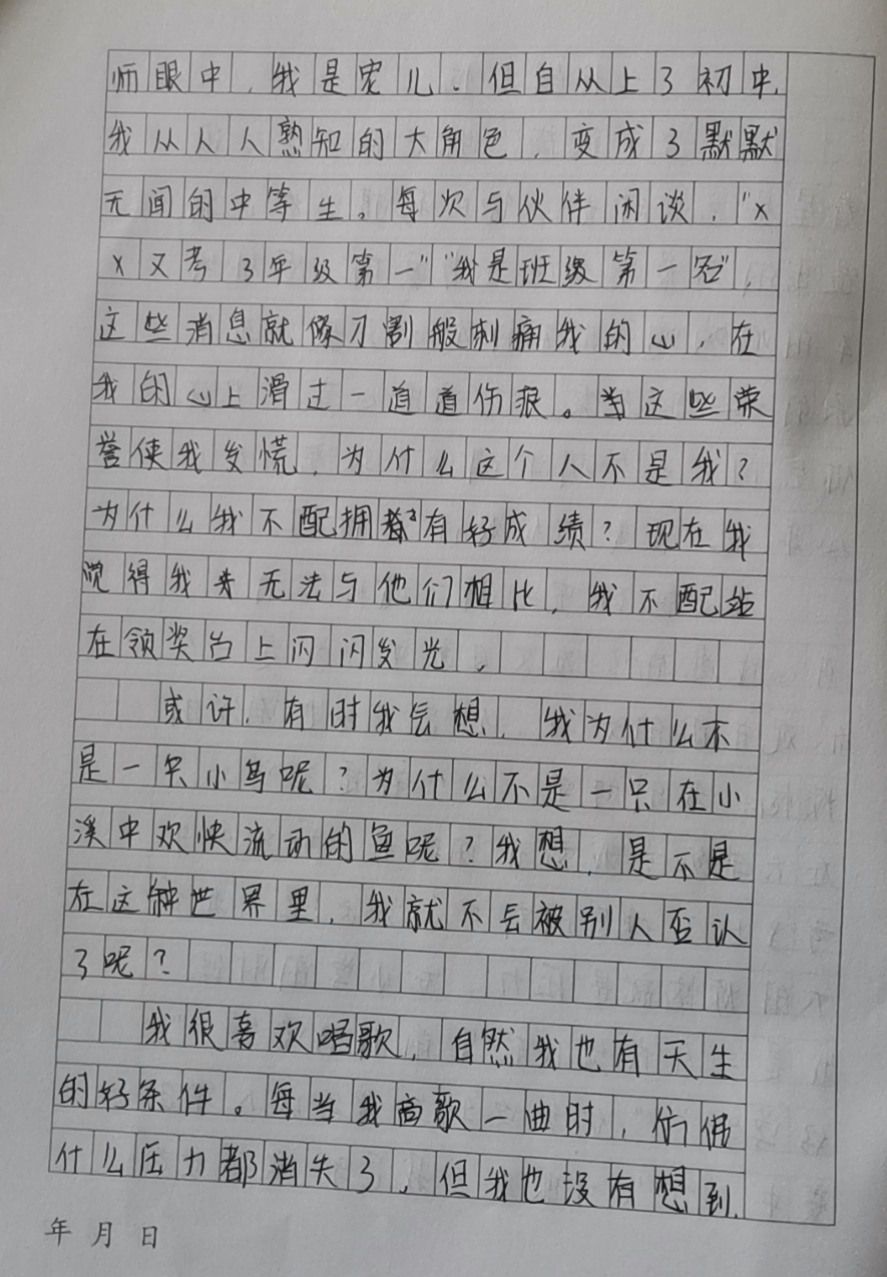 师眼中,我是宠儿.但自从上了初中,
我从人人熟知的大角色,变成了默默
无闻的中等生。每次与伙伴闲谈,"x
x又考了年级第一""我是班级第一名",
这些消息就像刀割般刺痛我的心,在
我的心上滑过一道道伤痕。当这些荣
誉使我发慌,为什么这个人不是我?
为什么我不配拥有好成绩?现在我
觉得我来无法与他们相比,我不配站
在领奖台上闪闪发光,
或许,有时我会想,我为什么不
是一只小鸟呢?为什么不是一只在小
溪中欢快流动的鱼呢?我想,是不是
在这种世界里,我就不会被别人否认
了呢?
我很喜欢唱歌,自然我也有天生
的好条件。每当我高歌一曲时,仿佛
什么压力都消失了,但我也没有想到,
年 月 日